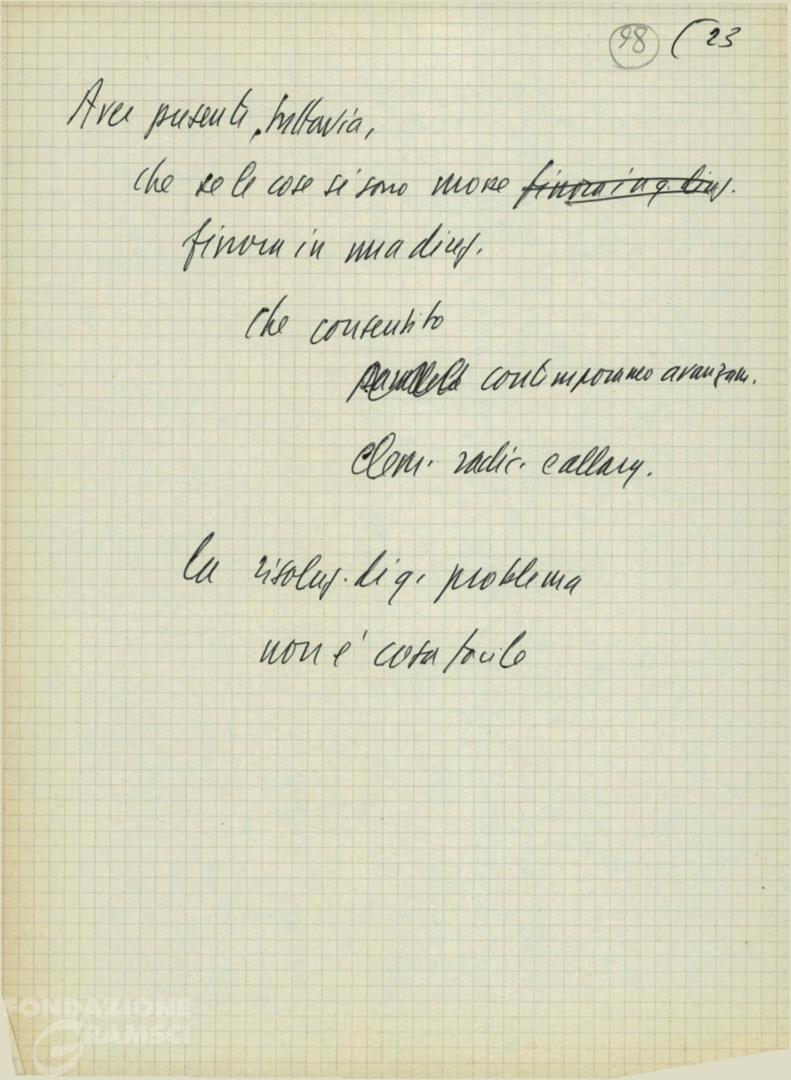 98 (23
Aver presente, tuttavia,
che se le cose si sono mosse finora in q. direz.
finora in una direz.
che consentito
contemporaneo avanzam.
elem. radic. e allarg.
la risoluz. di q. problema
non è cosa facile
FONDAZIONE
GRAMSCI